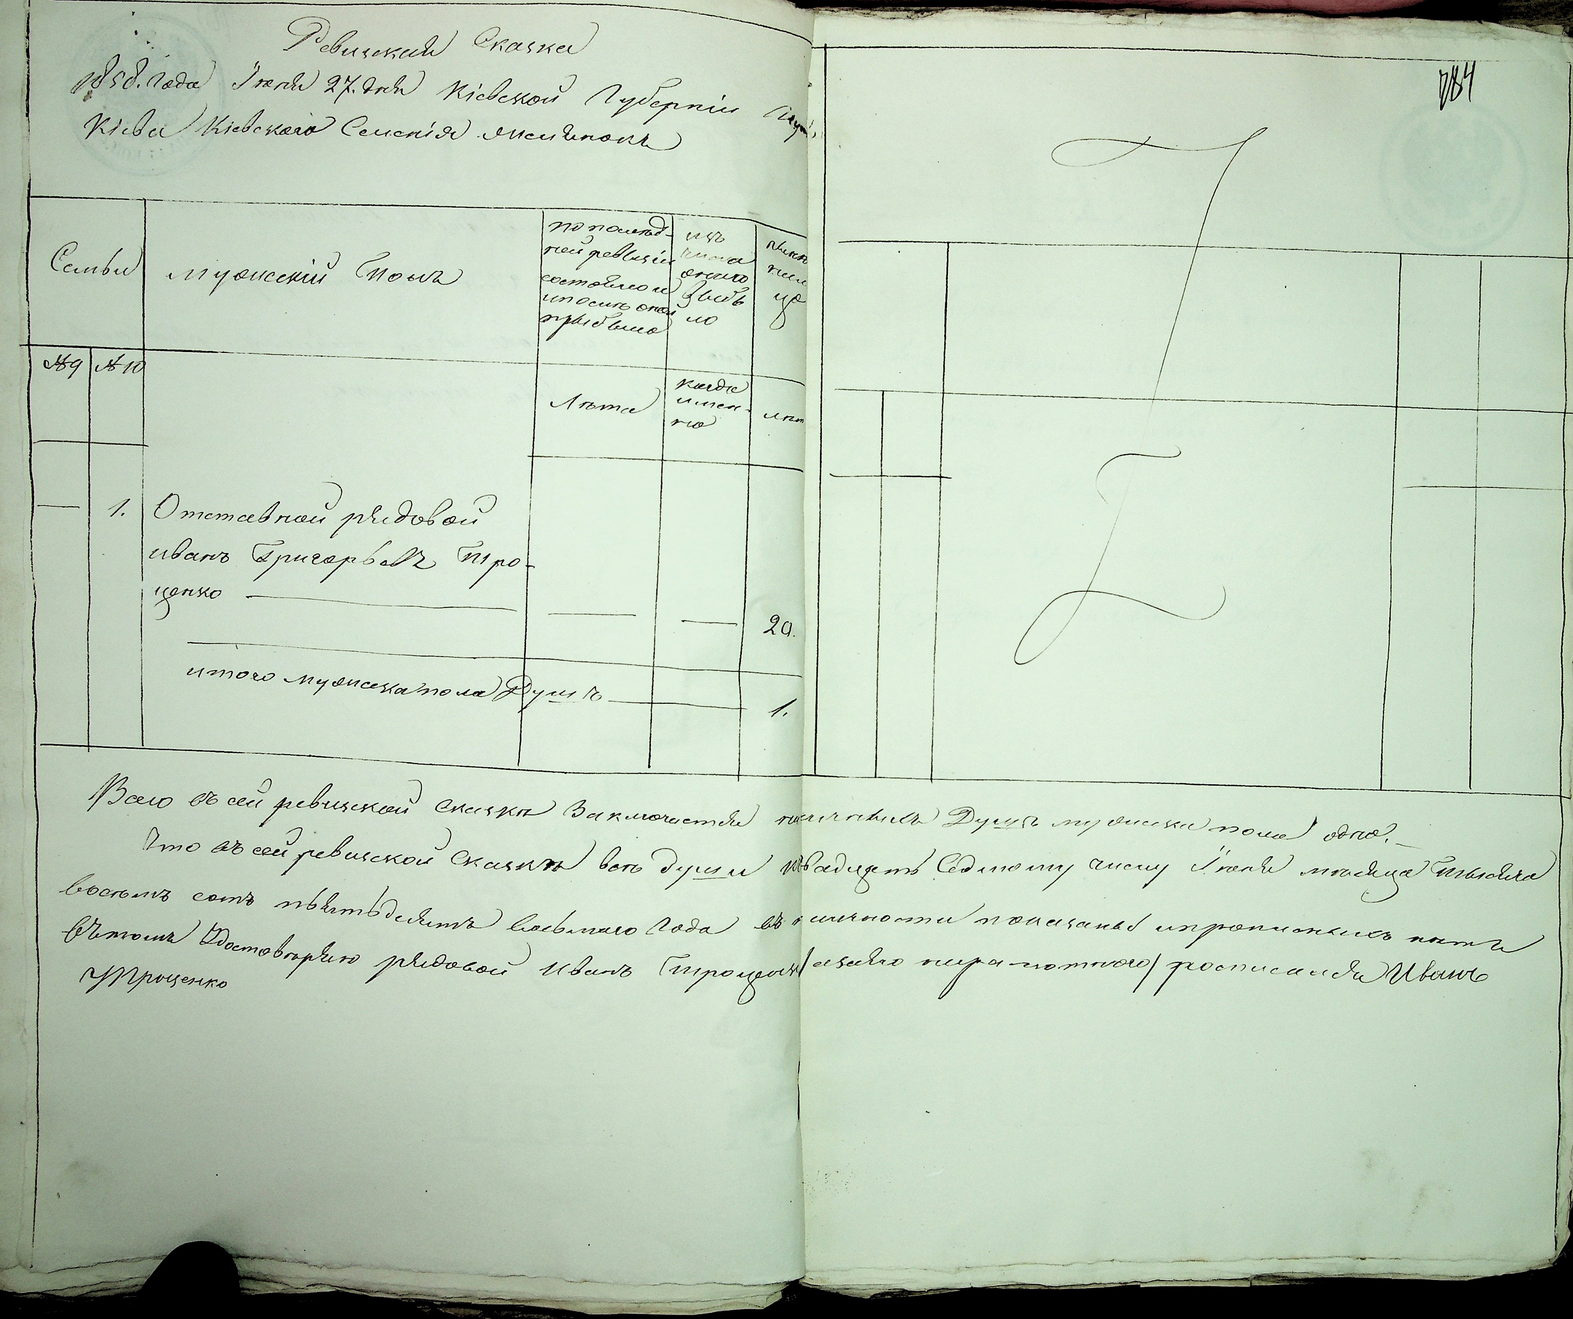 Ревизская Сказка
1858. Года Іюня 27. дня Кіевской Губерніи
Кіева Кіевского Семенія
784
Семьи
Мужескій Полъ
по послѣд-
ней ревизіи
состояло и
послѣ оной
прибыло
изъ
числа
оныхъ
выбы
ло
нынѣ
на ли
цо
№ 9
№ 10
Лѣта
когда
имен-
но
лѣт
1. Отставной рядовой
иванъ Григорьевъ Тро-
ценко
20.
итого мужеска пола Душъ 1.
Всего въ сей ревизской сказкѣ Заключается наличныхъ Душъ мужеска пола одна.
Что въ сей ревизской Сказкѣ всѣ души двадцать Седмому числу Іюня мѣсяца тысяча
восемь сотъ пятьдесятъ восьмаго Года въ личности показаны и прописныхъ нѣтъ
въ томъ Удостовѣряю рядовой Иванъ Троценко / а за него неграмотного / росписался Иванъ
Троценко